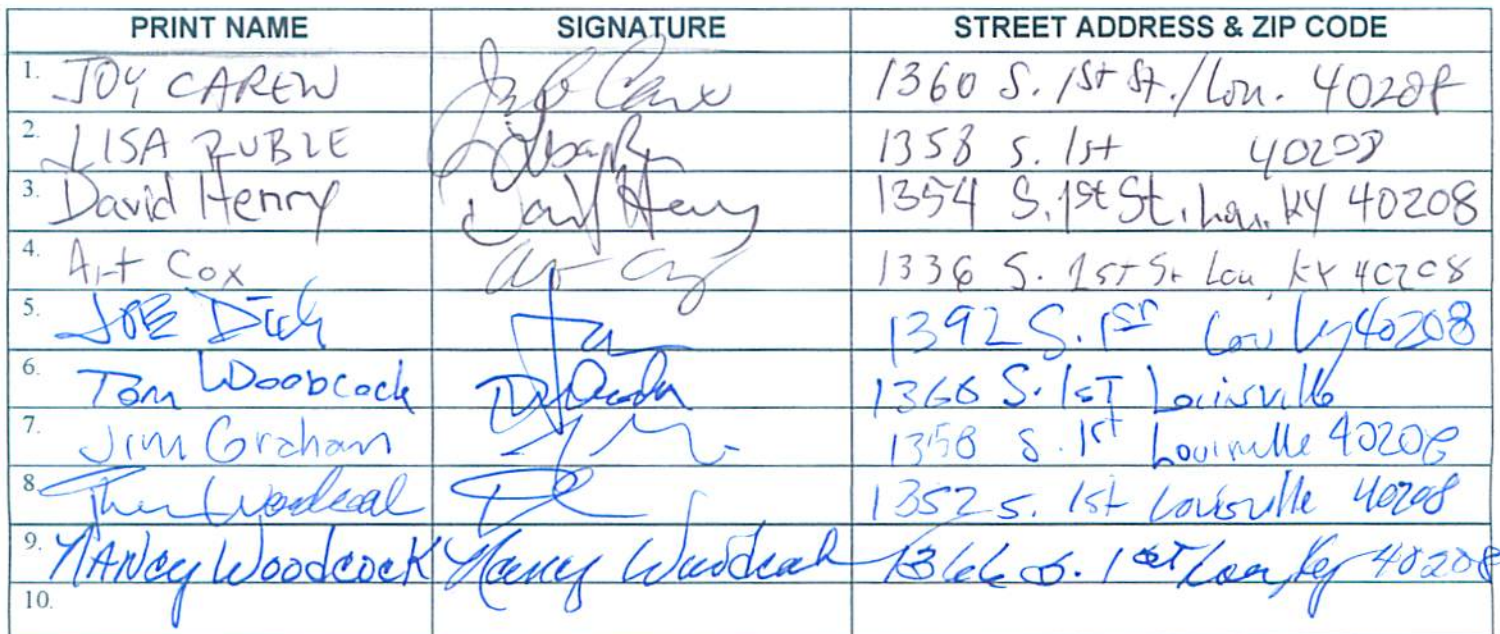 PRINT NAME SIGNATURE STREET ADDRESS & ZIP CODE
1. JOY CAREW 1360 S. 1st St./Lou. 40208
2. LISA RUBLE 1358 S. 1st 40208
3. David Henry David Henry 1354 S. 1st St. Lou. KY 40208
4. Art Cox 1336 S. 1st St Lou KY 40208
5. JOE 1392 S. 1st Lou Ky 40208
6. Tom Woodcock S. 1st Louisville
7. Jim Graham 1358 S. 1st Louisville 40208
8. 1352 S. 1st Louisville 40208
9. NANcy Woodcock Nancy Woodcock 1366 S. 1st Lou, Ky 40208
10.